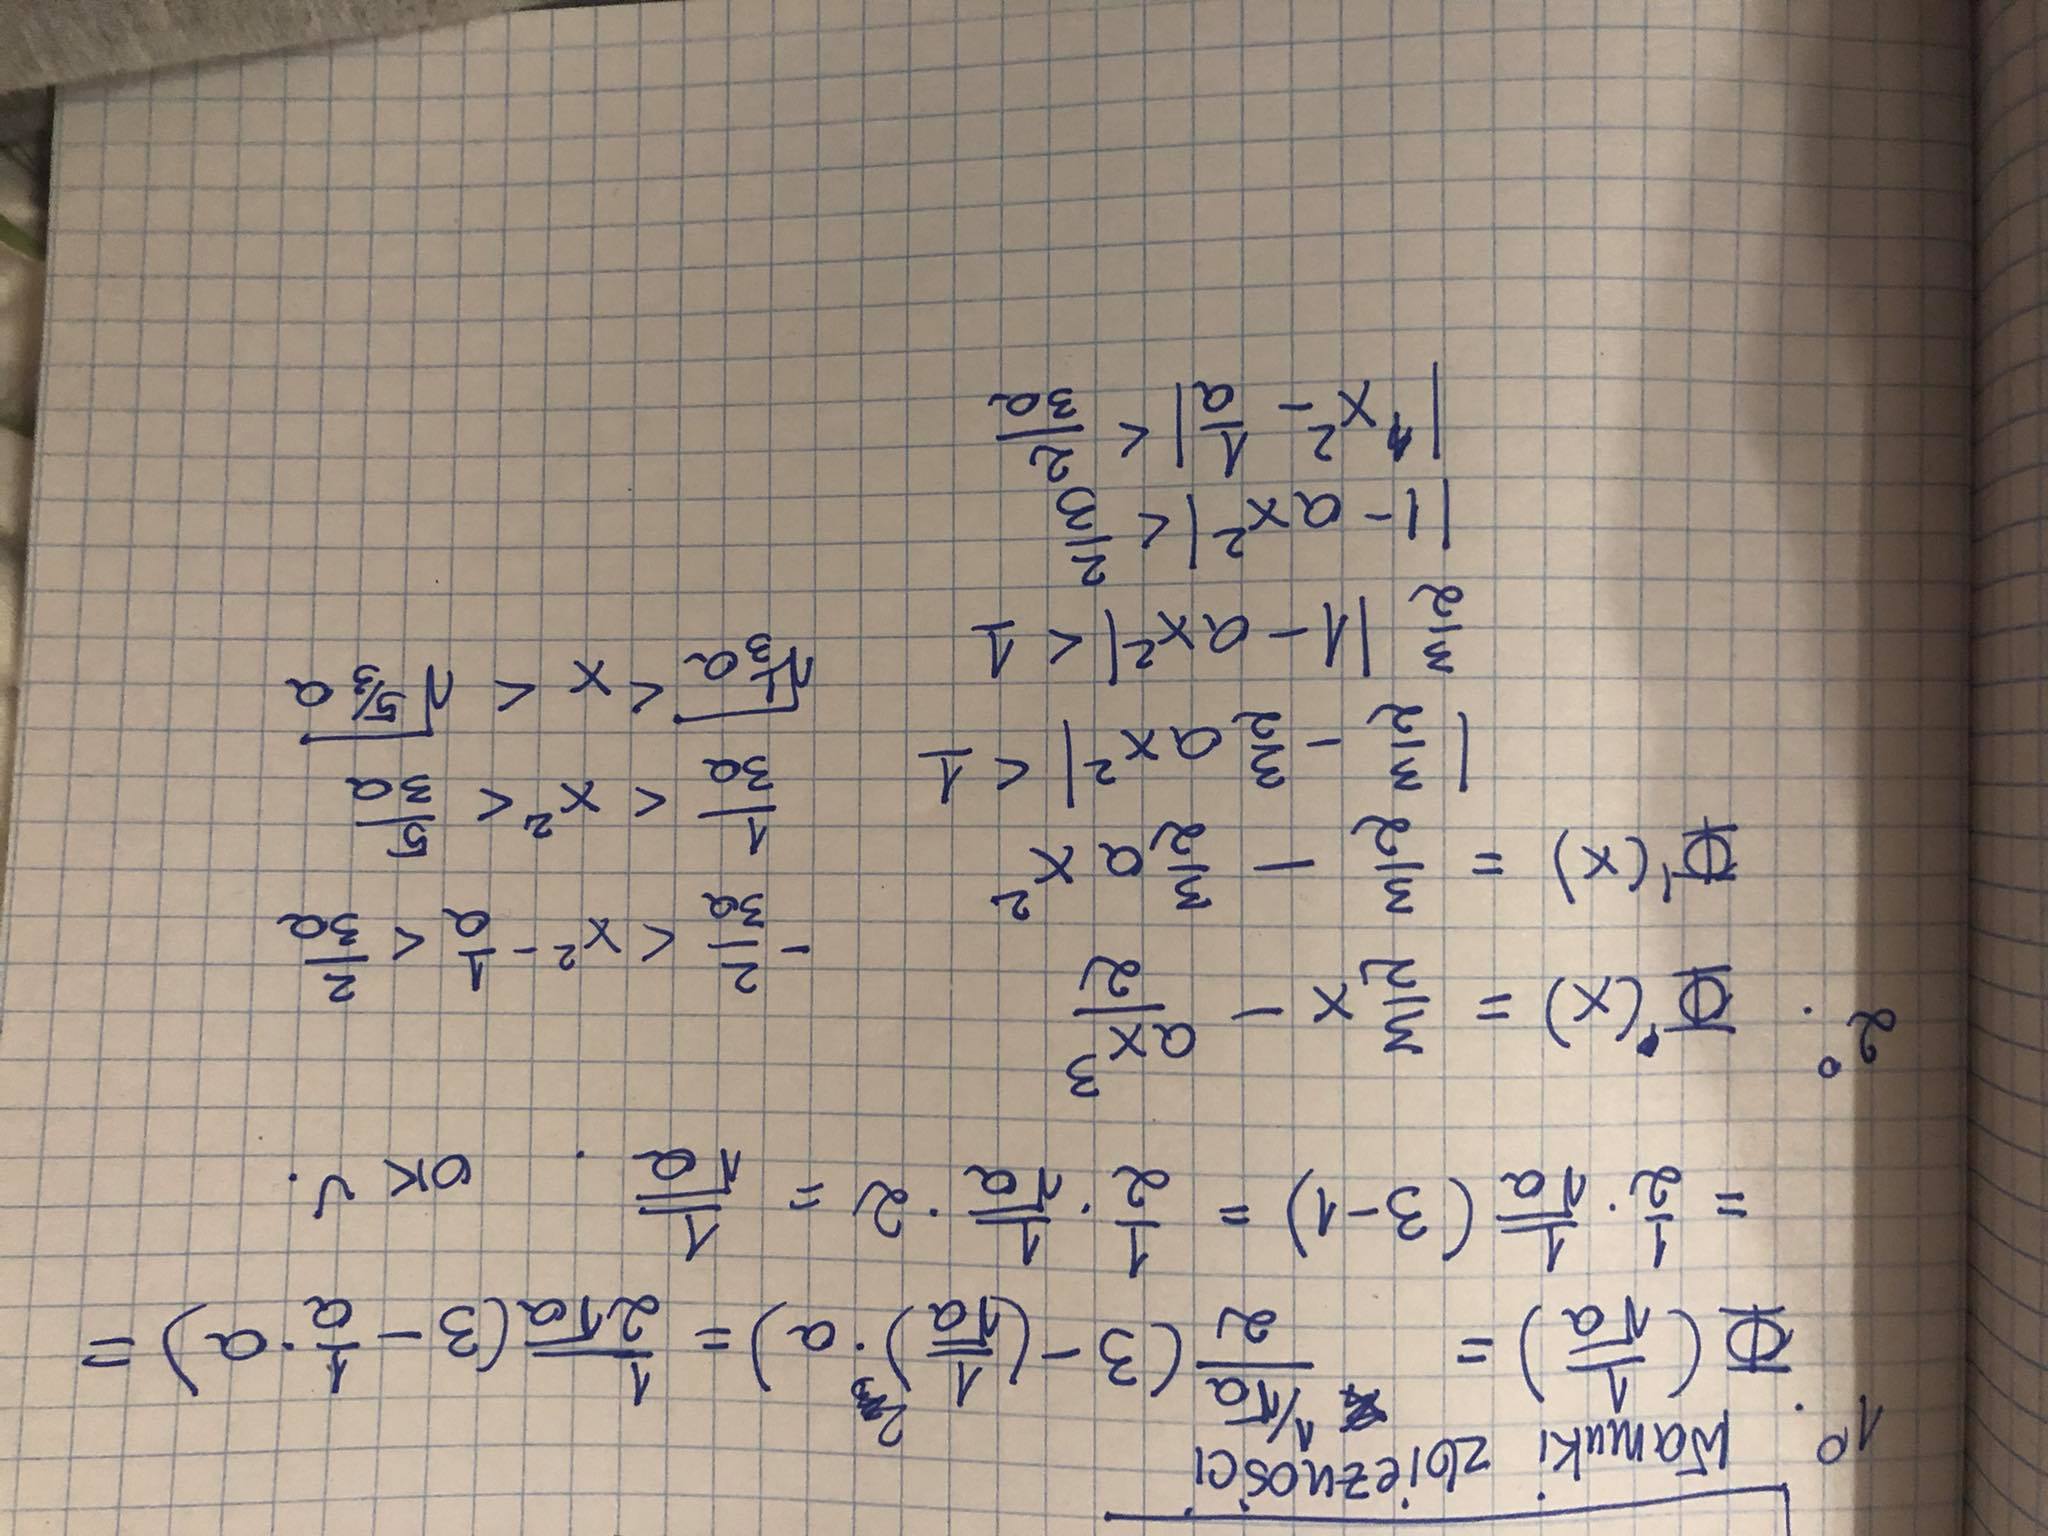 1°. Warunki zbieżności
Φ(1/√a) = (1/√a)/2 (3 - (1/√a)² · a) = 1/(2√a) (3 - 1/a · a) =
= 1/2 · 1/√a (3 - 1) = 1/2 · 1/√a · 2 = 1/√a . OK √.
2°. Φ'(x) = 3/2 x - ax³/2
Φ'(x) = 3/2 - 3/2 a x²
| 3/2 - 3/2 ax² | < 1
3/2 |1 - ax²| < 1
|1 - ax²| < 2/3
| x² - 1/a | < 2/3a
- 2/3a < x² - 1/a < 2/3a
1/3a < x² < 5/3a
√(1/3 a) < x < √(5/3 a)